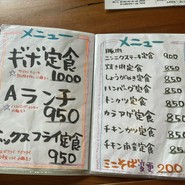 メニュー
ギョーザ定食
1000
Aランチ
950
ミックスフライ定食
950
メニュー
豚肉
ニンニクステーキ定食 900
焼き肉定食 850
しょうがやき定食 850
ハンバーグ定食 850
トンカツ定食 850
カラアゲ定食 850
チキンカツ定食 850
チキン南蛮定食 850
ミニそば変更 200